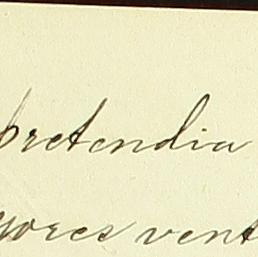 pretendia
yores vent